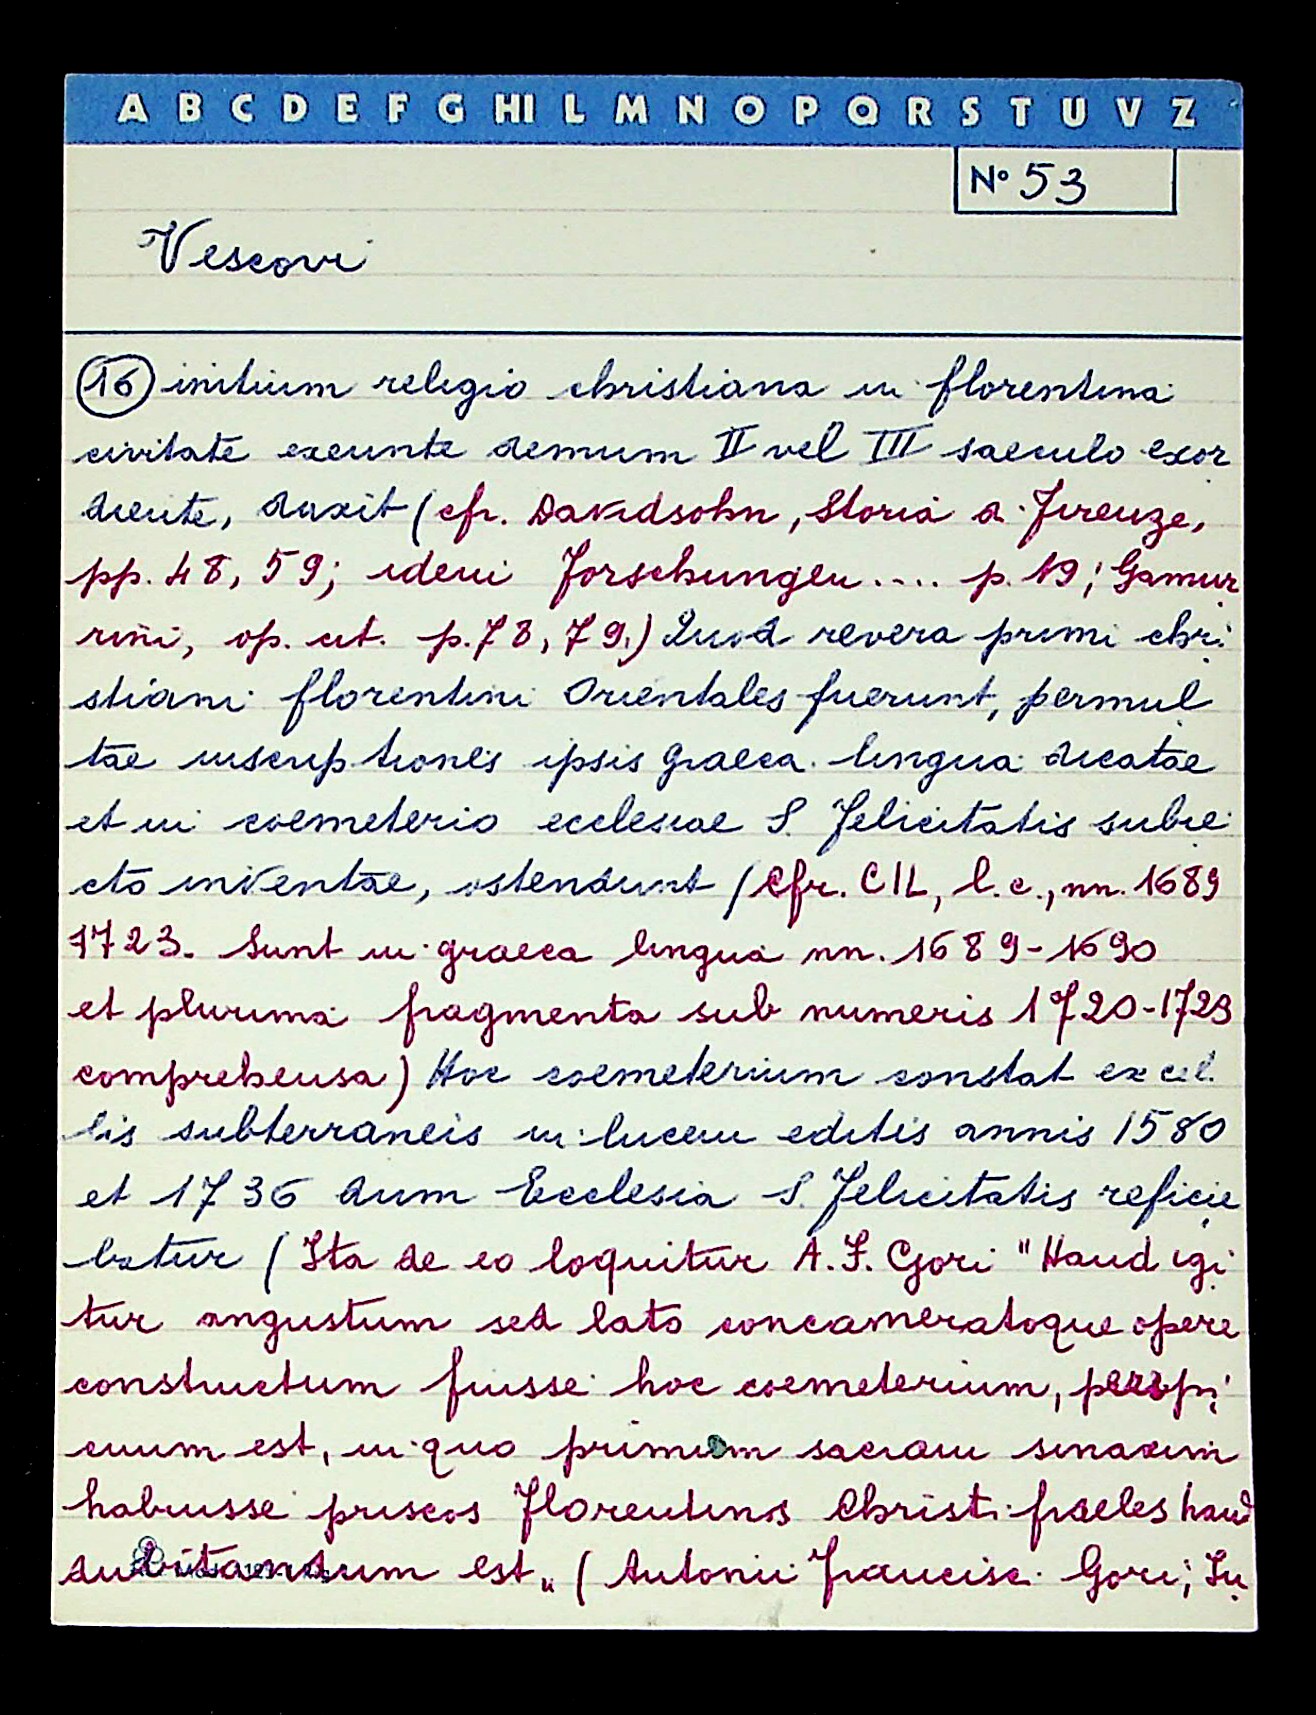 A B C D E F G HI L M N O P Q R S T U V Z
N° 53
Vescovi
16 initium religio christiana in florentina
civitate exeunte demum II vel III saeculo exor
diente, duxit (cfr. Davidsohn, Storia di Firenze,
pp. 48, 59; idem Forschungen .... p. 19; Gamur
rini, op. cit. p. 78, 79.) Quod revera primi chri
stiani florentini Orientales fuerunt, permul
tae inscriptiones ipsis graeca lingua dicatae
et in coemeterio ecclesiae S. Felicitatis subie
cto inventae, ostendunt (Cfr. CIL, l.c., nn. 1689
1723. Sunt in graeca lingua nn. 1689-1690
et plurima fragmenta sub numeris 1720-1723
comprehensa) Hoc coemeterium constat ex cel
lis subterraneis in lucem editis annis 1580
et 1736 dum Ecclesia S. Felicitatis reficie
batur (Ita de eo loquitur A. F. Gori "Haud igi
tur angustum sed lato concameratoque opere
constructum fuisse hoc coemeterium, perspi
cuum est, in quo primum sacram sinaxim
habuisse priscos Florentinos Christi fideles haud
dubitandum est„ (Antonii Francisc. Gori; In